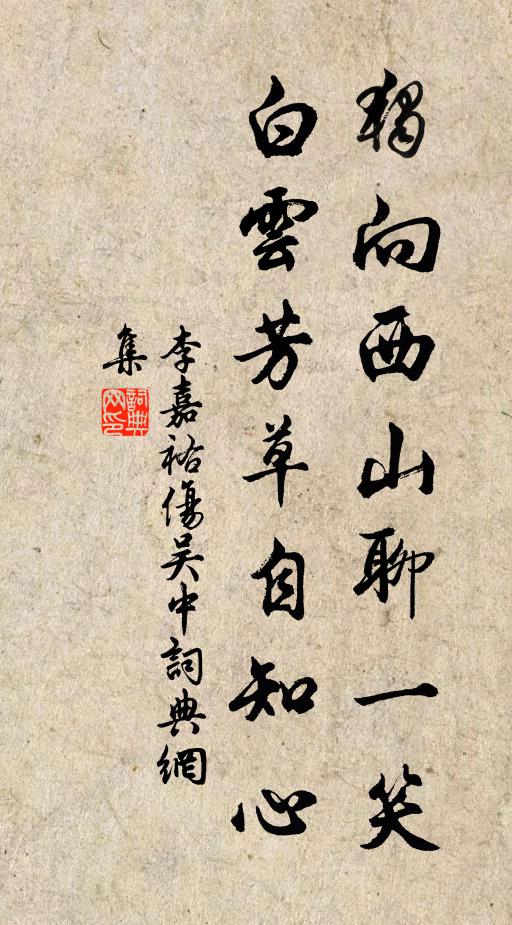 獨向西山聊一笑
白雲芳草自知心
李嘉祐傷吳中詞典網
集
詞典網印